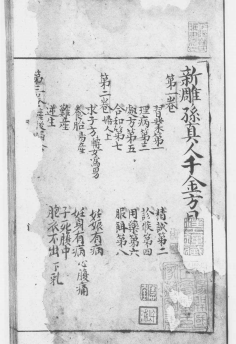 新雕孫真人千金方目
第一卷
習業第一 精誠第二
理病第三 診候第四
處方第五 用藥第六
合和第七 服餌第八
第二卷 婦人上
求子方 轉女為男 妊娠有病
養胎 妊身有病 心腹痛
難產 子死腹中
逆生 胞衣不出 下乳
第三